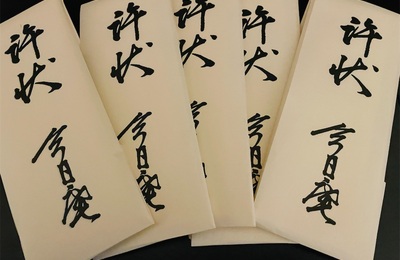 許状
今日庵
許状
今日庵
許状
許状
今日庵
許状
今日庵